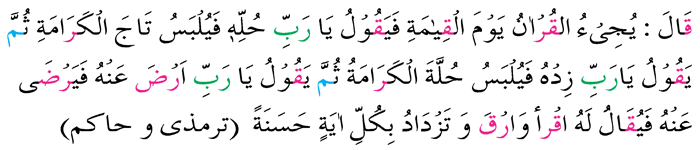 قَالَ : يُجِيْءُ الْقُرْاٰنُ يَوْمَ الْقِيٰمَةِ فَيَقُوْلُ يَا رَبِّ حُلِّهٖ فَيُلْبَسُ تَاجَ الْكَرَامَةِ ثُمَّ
يَقُوْلُ يَارَبِّ زِدْهُ فَيُلْبَسُ حُلَّةَ الْكَرَامَةُ ثُمَّ يَقُوْلُ يَا رَبِّ اَرْضَ عَنْهُ فَيَرْضَى
عَنْهُ فَيُقَالُ لَهُ اقْرأْ وَارْقَ وَ تَزْدَادُ بِكُلِّ اٰيَةٍ حَسَنَةً (ترمذى و حاكم)